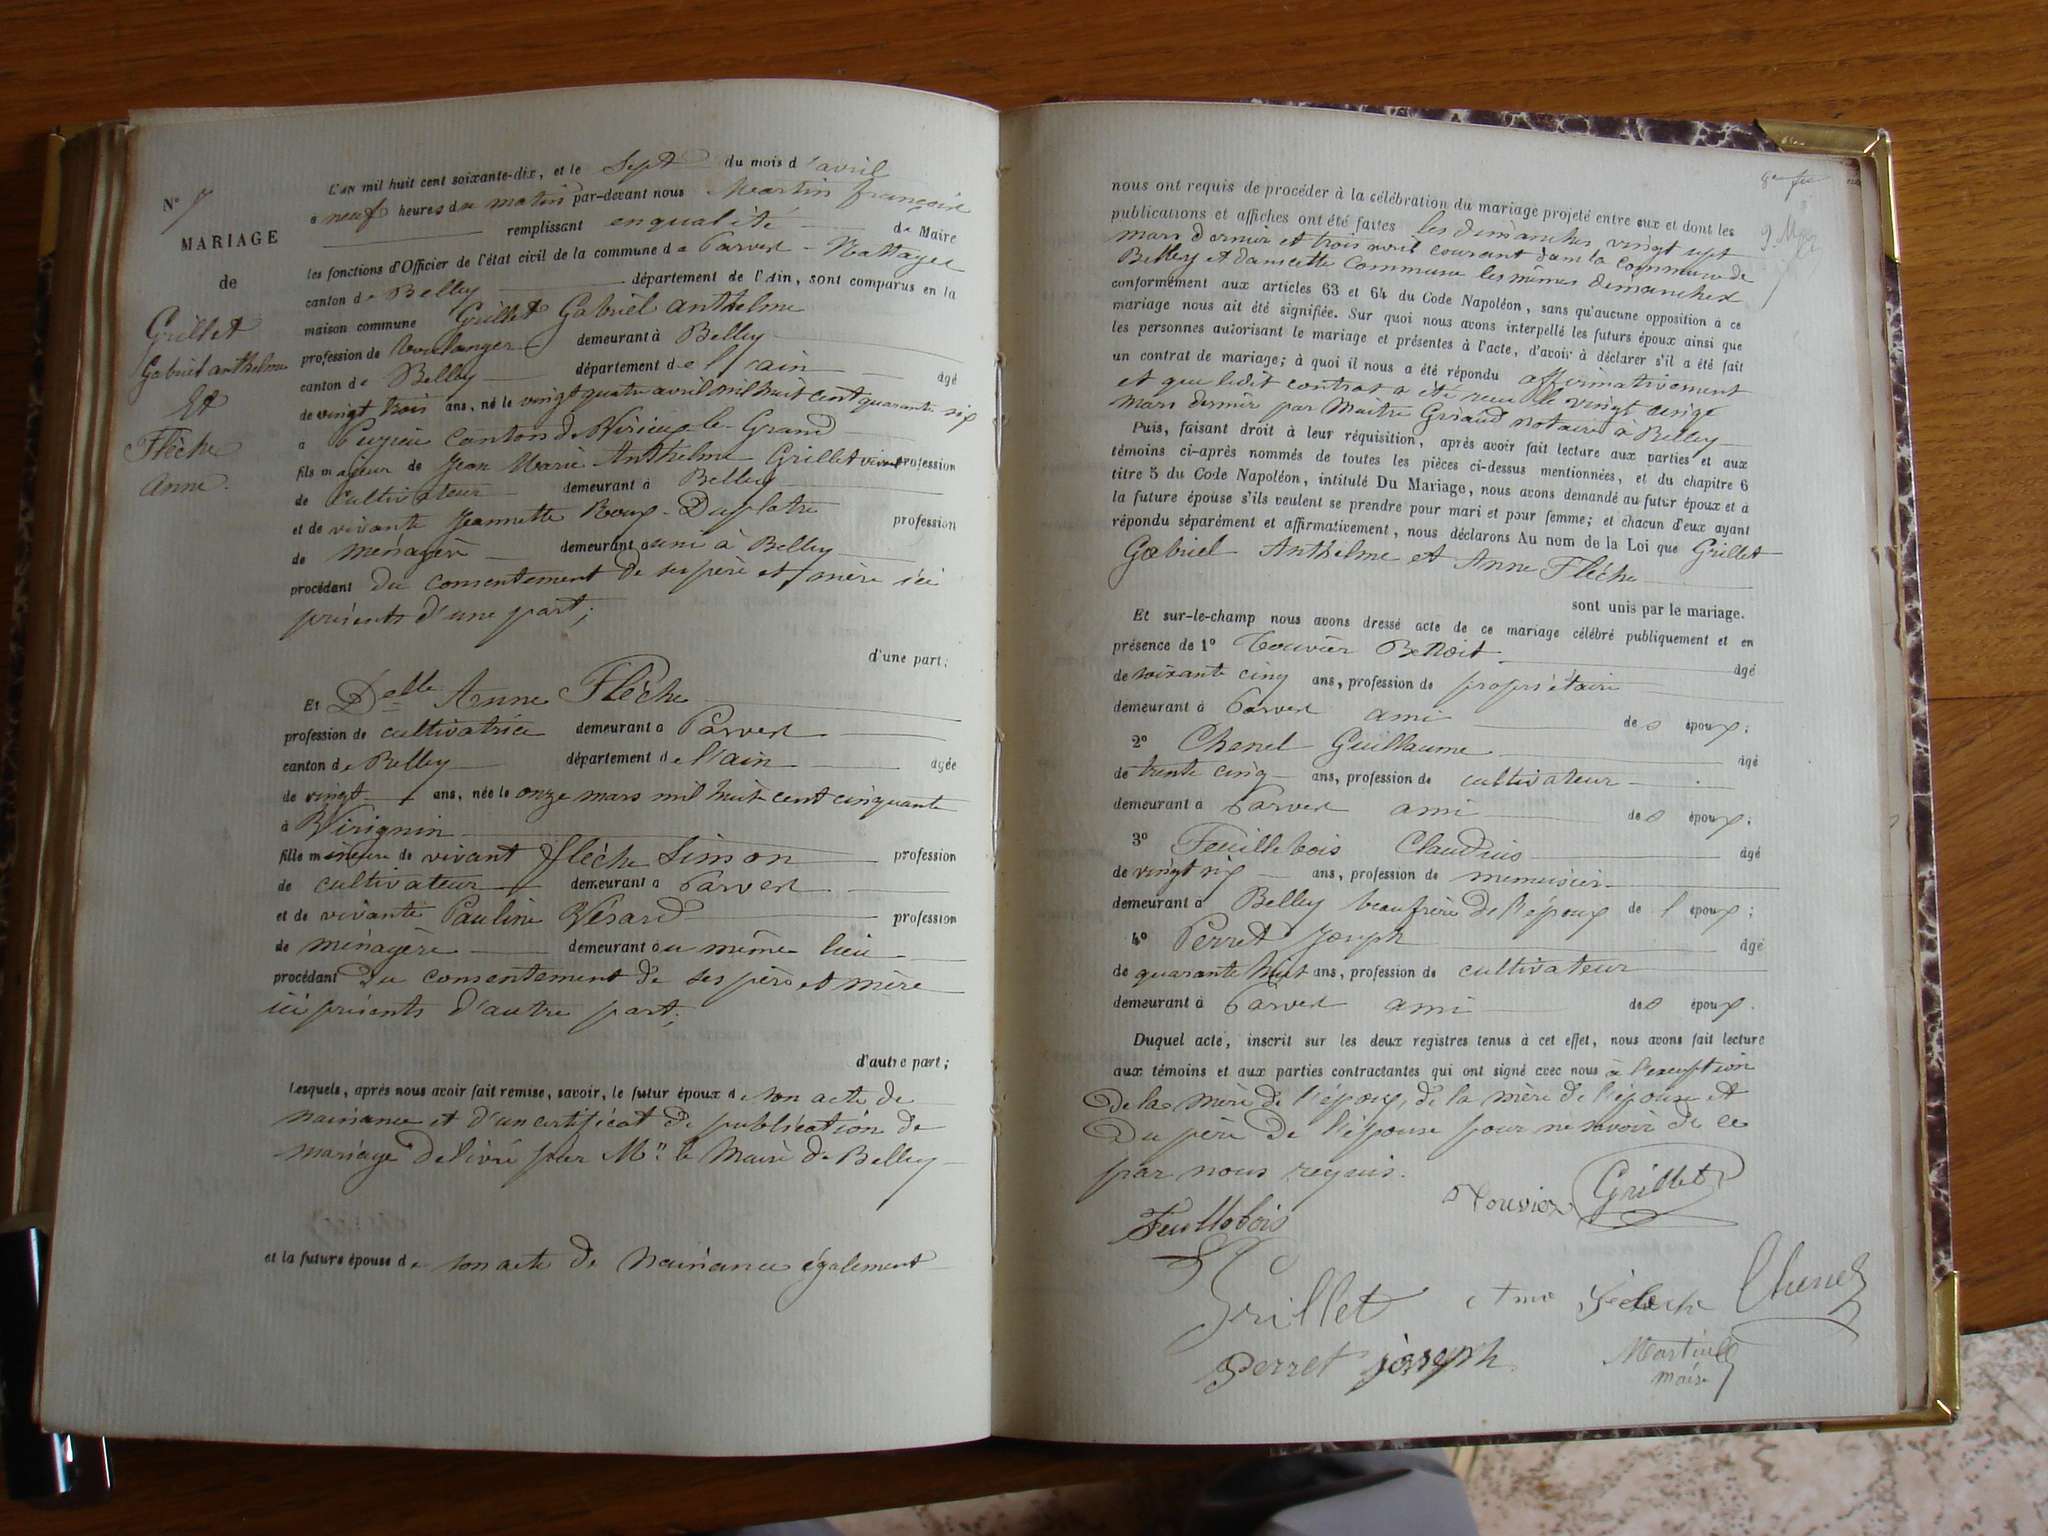 N° 7
MARIAGE
de
Grillet
Gabriel anthelme
Et
Flèche
Anne.
L'AN mil huit cent soixante-dix, et le Sept du mois d'avril
a neuf heures du matin par-devant nous Martin françois
remplissant en qualité de Maire
les fonctions d'Officier de l'état civil de la commune de Parves - Nattages
canton de Belley département de l'Ain, sont comparus en la
maison commune Grillet Gabriel anthelme
profession de boulanger demeurant à Belley
canton de Belley département de l'ain âgé
de vingt trois ans, né le vingt quatre avril mil huit cent quarante six
a Pugieu canton de Virieux-le-Grand
fils majeur de Jean Marie Anthelme Grillet vivant profession
de cultivateur demeurant à Belley
et de vivante Jeannette Roux-Duplatre profession
de ménagère demeurant aussi à Belley
procédant du consentement de ses père et mère ici
présents d'une part;
d'une part;
Et Delle Anne Flèche
profession de cultivatrice demeurant a Parves
canton de Belley département de l'ain agée
de vingt ans, née le onze mars mil huit cent cinquante
à Virignin
fille mineure de vivant Flèche Simon profession
de cultivateur demeurant a Parves
et de vivante Pauline Vésard profession
de ménagère demeurant au même lieu
procédant du consentement de ses père et mère
ici présents d'autre part;
d'autre part;
Lesquels, après nous avoir fait remise, savoir, le futur époux de son acte de
naissance et d'un certificat de publication de
mariage délivré par Mr le Maire de Belley
et la future épouse de son acte de naissance également
nous ont requis de procéder à la célébration du mariage projeté entre eux et dont les
publications et affiches ont été faites les dimanches vingt sept
mars dernier et trois avril courant dans la commune de
Belley et dans cette commune les mêmes dimanches
conformément aux articles 63 et 64 du Code Napoléon, sans qu'aucune opposition à ce
mariage nous ait été signifiée. Sur quoi nous avons interpellé les futurs époux ainsi que
les personnes autorisant le mariage et présentes à l'acte, d'avoir à déclarer s'il a été fait
un contrat de mariage; à quoi il nous a été répondu affirmativement
et que ledit contrat a été reçu le vingt
mars dernier par Maitre notaire à Belley
Puis, faisant droit à leur réquisition, après avoir fait lecture aux parties et aux
témoins ci-après nommés de toutes les pièces ci-dessus mentionnées, et du chapitre 6
titre 5 du Code Napoléon, intitulé Du Mariage, nous avons demandé au futur époux et à
la future épouse s'ils veulent se prendre pour mari et pour femme; et chacun d'eux ayant
répondu séparément et affirmativement, nous déclarons Au nom de la Loi que Grillet
Gabriel Anthelme et Anne Flèche
sont unis par le mariage.
Et sur-le-champ nous avons dressé acte de ce mariage célébré publiquement et en
présence de 1° Touvier Benoit âgé
de soixante cinq ans, profession de propriétaire
demeurant à Parves ami des époux;
2° Chenel Guillaume âgé
de trente cinq ans, profession de cultivateur
demeurant à Parves ami des époux;
3° Feuillebois Claudius âgé
de vingt six ans, profession de menuisier
demeurant à Belley beau frère de l'époux de l'époux;
4° Perret Joseph âgé
de quarante huit ans, profession de cultivateur
demeurant à Parves ami des époux.
Duquel acte, inscrit sur les deux registres tenus à cet effet, nous avons fait lecture
aux témoins et aux parties contractantes qui ont signé avec nous à l'exception
de la mère de l'époux, de la mère de l'épouse et
du père de l'épouse pour ne savoir de ce
par nous requis.
Touvier Grillet
Feuillebois
Grillet Flèche Chenel
Perret joseph Martin
maire